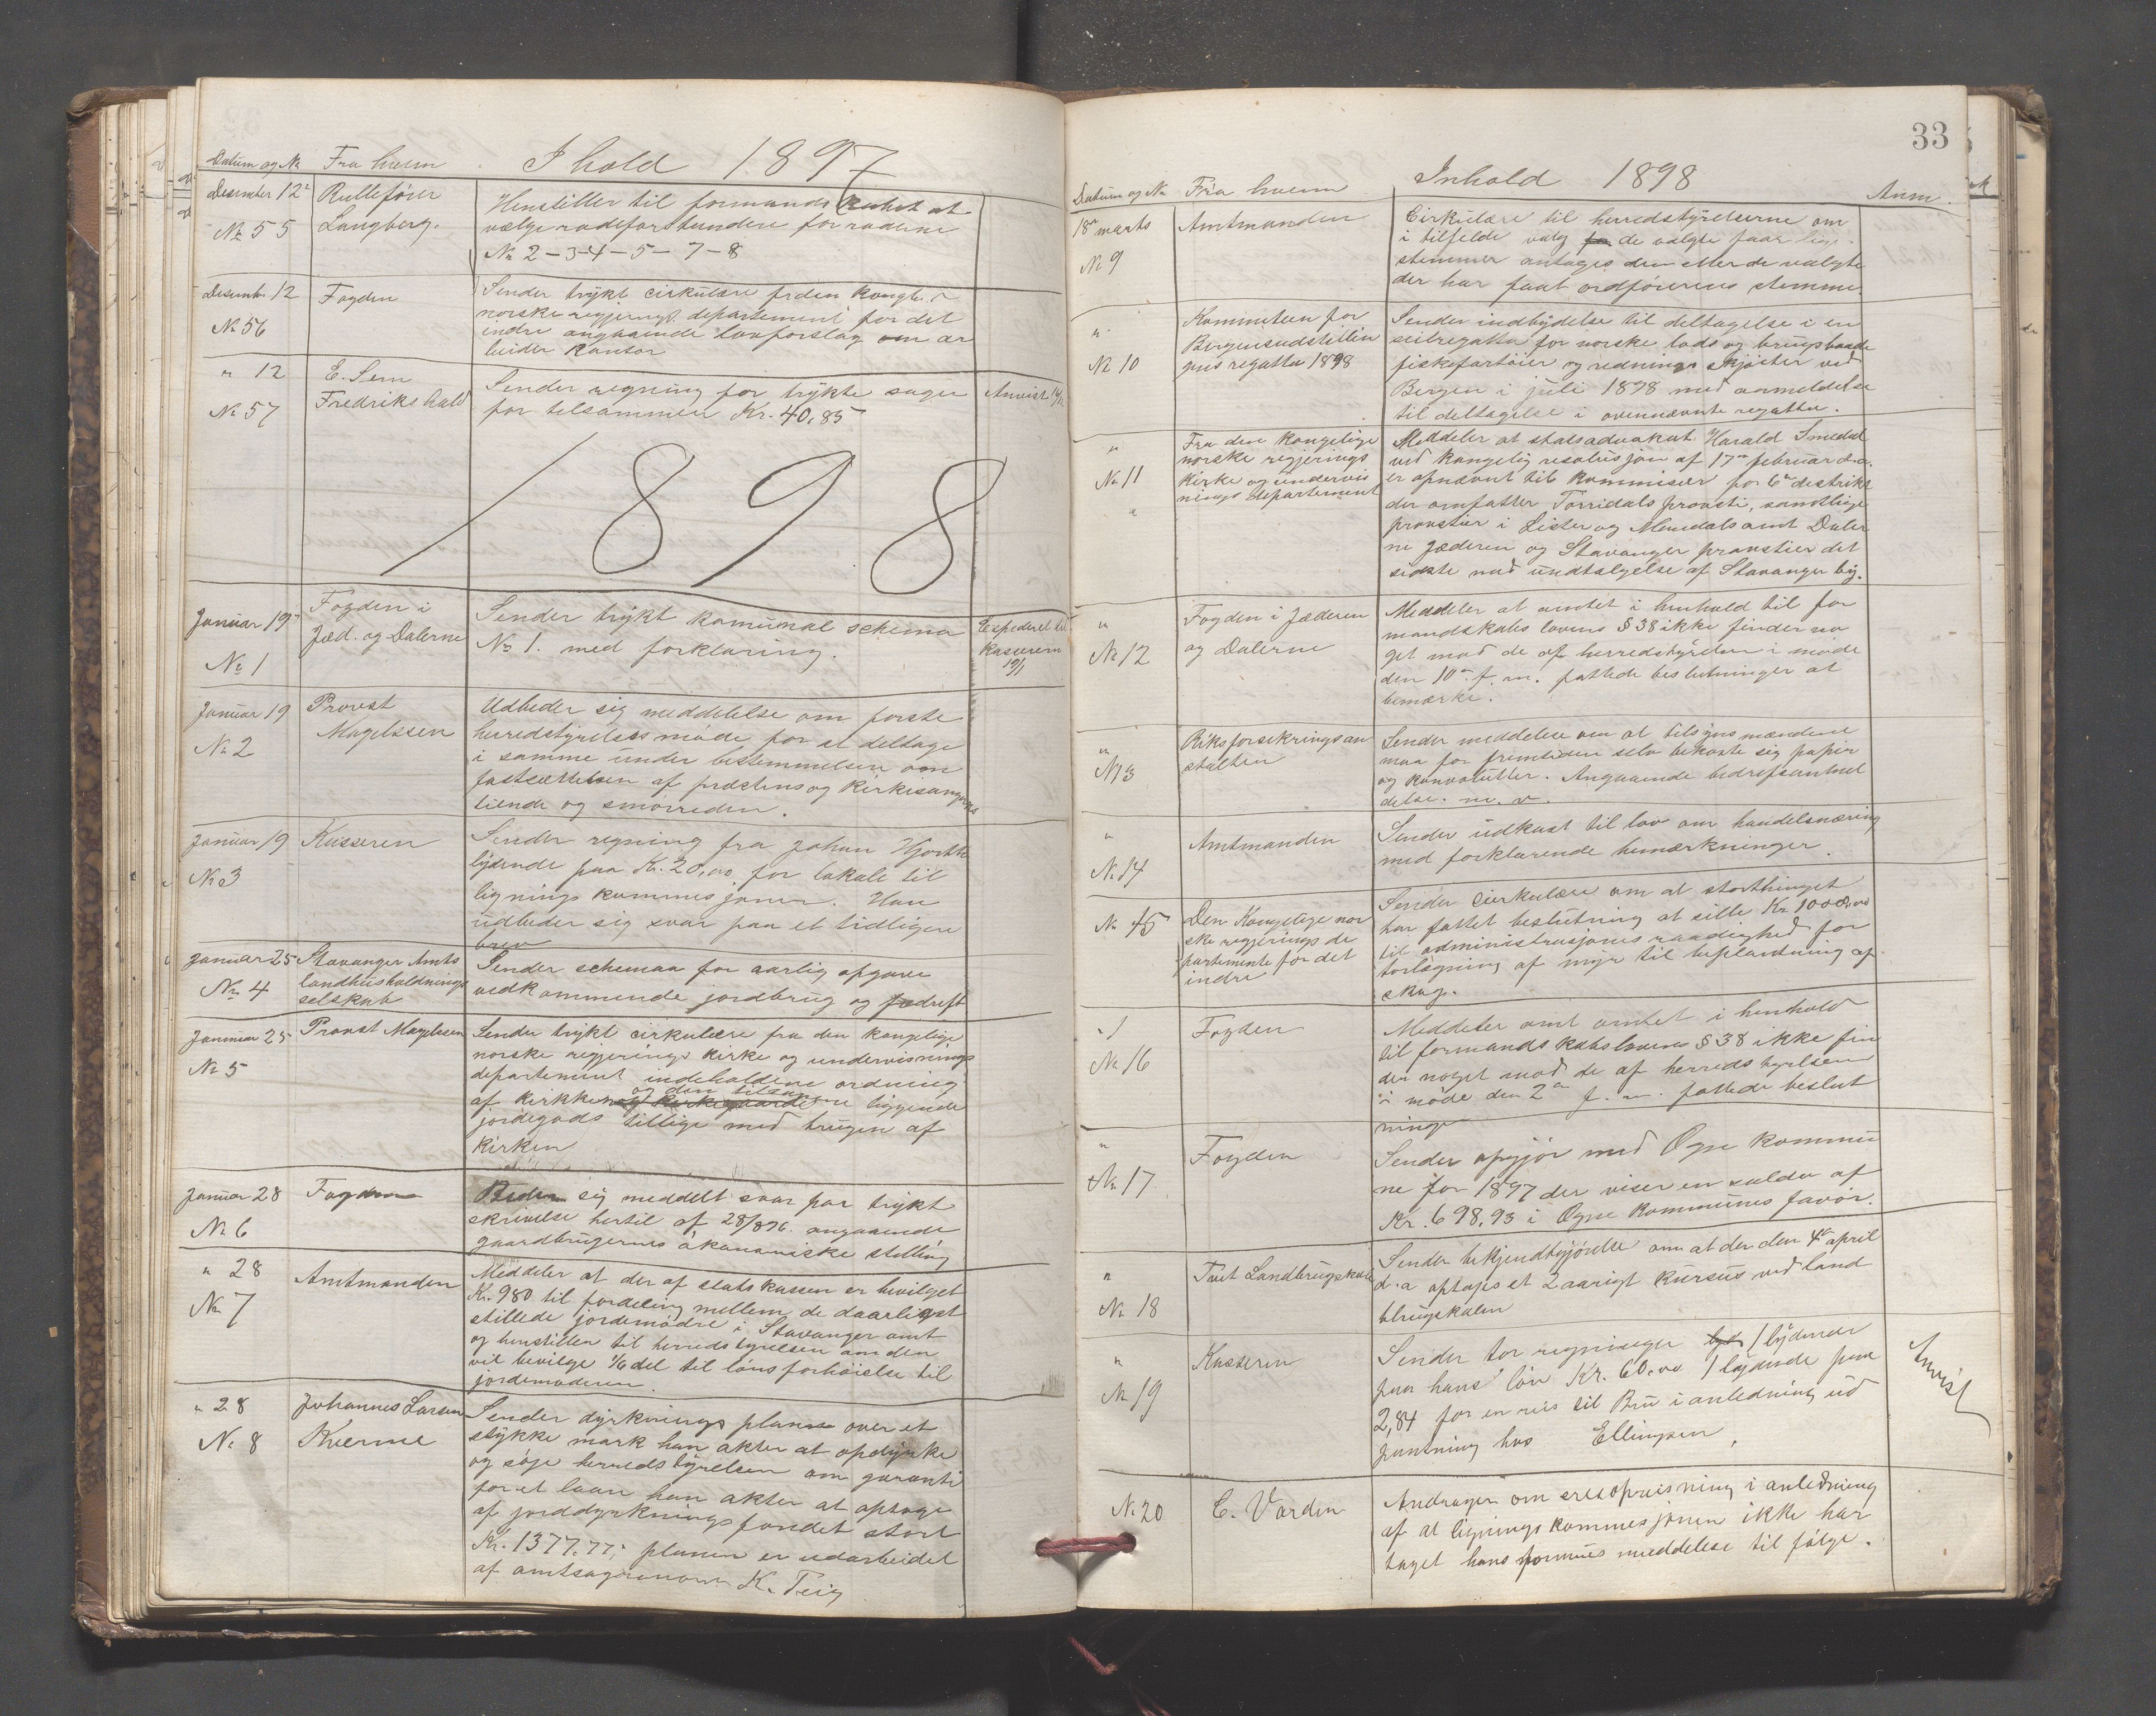 Datum og № Fra hvem Ihold 1897
Desember 12te Rullefører Henstiller til formandskabet at
№ 55 Langberg. vælge rodeforstandere for roderne
№ 2-3-4-5-7-8
Desemb. 12 Fogden Sender trykt cirkulære fra den kongle.
№ 56 norske regjerings departement for det
indre angaaende lovforslag om ar
beider kontor
" 12 E. Sem Sender regning for trykte sager Anvist
№ 57 Fredrikshald for tilsammen Kr. 40,85
1898
Januar 19de Fogden i Sender trykt komunal schema Expederet til
№ 1 Jæd. og Dalerne № 1. med forklaring. kasseren
19/1
Januar 19 Provst Udbeder sig meddelelse om første
№ 2 Magelssen herredstyrelses møde for at deltage
i samme under bestemmelsen om
fastsættelsen af prestens og Kirkesangerens
tiende og smørreden.
Januar 19 Kasseren Sender regning fra Johan Hjorth
№ 3 lydende paa Kr. 20,00 for lokale til
lignings kommesjonen. Han
udbeder sig svar paa et tidligere
brev
Januar 25 Stavanger Amts Sender schemaa for aarlig opgave
№ 4 landhusholdnings vedkommende jordbrug og fædrift
selskab
Januar 25 Provst Magelssen Sender trykt cirkulære fra den kongelige
№ 5 norske regjerings kirke og undervisnings
departement indeholdene ordning
og den tilsam
af kirkken og kirkegaardene liggende
jordegods tillige med brugen af
kirken
Januar 28 Fogden Beder sig meddelt svar paa trykt
№ 6 skrivelse hertil af 28/8 96. angaaende
gaardbrugernes økonomiske stilling
" 28 Amtmanden Meddeler at der af statskassen er bevilget
№ 7 Kr. 980 til fordeling mellem de daarligst
stillede jordemødre i Stavanger amt
og henstiller til herredstyrelsen om den
vil bevilge 1/6 del til lønsforhøielse til
jordemoderen.
" 28 Johannes Larsen Sender dyrknings plan over et
№ 8 Kverme stykke mark han akter at opdyrke
og søge herredstyrelsen om garanti
for et laan han akter at optage
af jorddyrkningsfondet stort
Kr. 1377.77; planen er udarbeidet
af amtsagronom K. Teig
33
Datum og № Fra hvem Inhold 1898 Anm.
18de marts Amtmanden Cirkulære til herredstyrelserne om
№ 9 i tilfelde valg for de valgte faar lige
stemmer antages den eller de valgte
der har faat ordførerens stemme.
" Kommiteen for Sender indbydelse til deltagelse i en
№ 10 Bergensudstillin seilregatta for norske lods og brugsbaade
gens regatta 1898 fiskefartøier og rednings skjøiter ved
Bergen i juli 1898 med anmeldelse
til deltagelse i ovennævnte regatta.
" Fra den kongelige Meddeler at statsadvokat Harald Smedal
№ 11 norske regjerings ved kongelig resolusjon af 17de februar d.a.
kirke og undervis er opnævnt til kommisær for 6te destrikt
nings departement der omfatter Torridals provsti, samtlige
provstier i Lister og Mandals amt Daler
ne Jæderen og Stavanger provstier det
sidste med undtagelse af Stavanger by.
" Fogden i Jæderen Meddeler at amtet i henhold til for
№ 12 og Dalerne mandskabs lovens § 38 ikke finder no
get mod de af herredstyrelsen i møde
den 10de f. m. fattede beslutninger at
bemærke.
" Riksforsikringsan Sender meddelse om at tilsynsmændene
№ 13 stalten maa for fremtiden selv bekoste sig papir
og konvolutter. Angaaende bedrefsanmel
delse. m. v.
" Amtmanden Sender udkast til lov om handelsnæring
№ 14 med forklarende bemærkninger.
№ 15 Den Kongelige nor Sender cirkulære om at storthinget
ske regjerings de har fattet beslutning at stille Kr. 1000,00
partemente for det til administrasjonens raadighed for
indre tørlægning af myr til beplantning af
skog.
" Fogden Meddeler amt amtet i henhold
№ 16 til formandskabslovens § 38 ikke fin
der noget mod de af herredstyrelsen
i møde den 2den f. m. fattede beslut
ninger
" Fogden Sender opgjør med Ogne kommu
№ 17 ne for 1897 der viser en saldo af
Kr. 698,93 i Ogne kommunes favør.
" Tveit Landbrugskole Sender bekjendtgjørelse om at der den 4de april
№ 18 d.a optages et 2 aarigt kursus ved land
brugskolen
" Kasseren Sender tor regninger 1 lydende Anvist
№ 19 paa hans løn Kr. 60,00 1 lydende paa
2,84 for en reis til Bru i anledning ud
pantning hos Ellingsen,
№ 20 C. Varden Andrager om eresopreisning i anledning
af at ligningskommesjonen ikke har
taget hans formues meddelelse til følge.